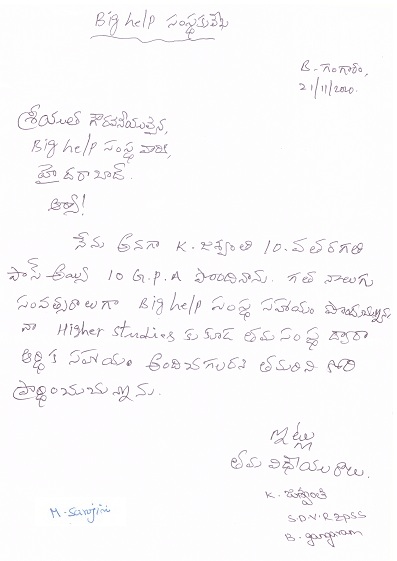 Big help సంస్థకు లేఖ
B. గంగారం,
21/11/2020.
శ్రీయుత గౌరవనీయులైన,
Big help సంస్థ వారి,
హైదరాబాద్.
ఆర్యా!
నేను అనగా K. జశ్వంతి 10. వతరగతి
పాస్ అయి 10 G.P.A పొందినాను. గత నాలుగు
సంవత్సరాలుగా Big help సంస్థ సహాయం పొందుచున్నాను
నా Higher studies కు కూడ తమ సంస్థ ద్వారా
ఆర్థిక సహాయం అందించగలరని తమరిని కోరి
ప్రార్థించుచున్నాను.
ఇట్లు
తమ విధేయురాలు.
K. జశ్వంతి
S.D.V.R ZPSS
B. gangaram
M. Sarojini